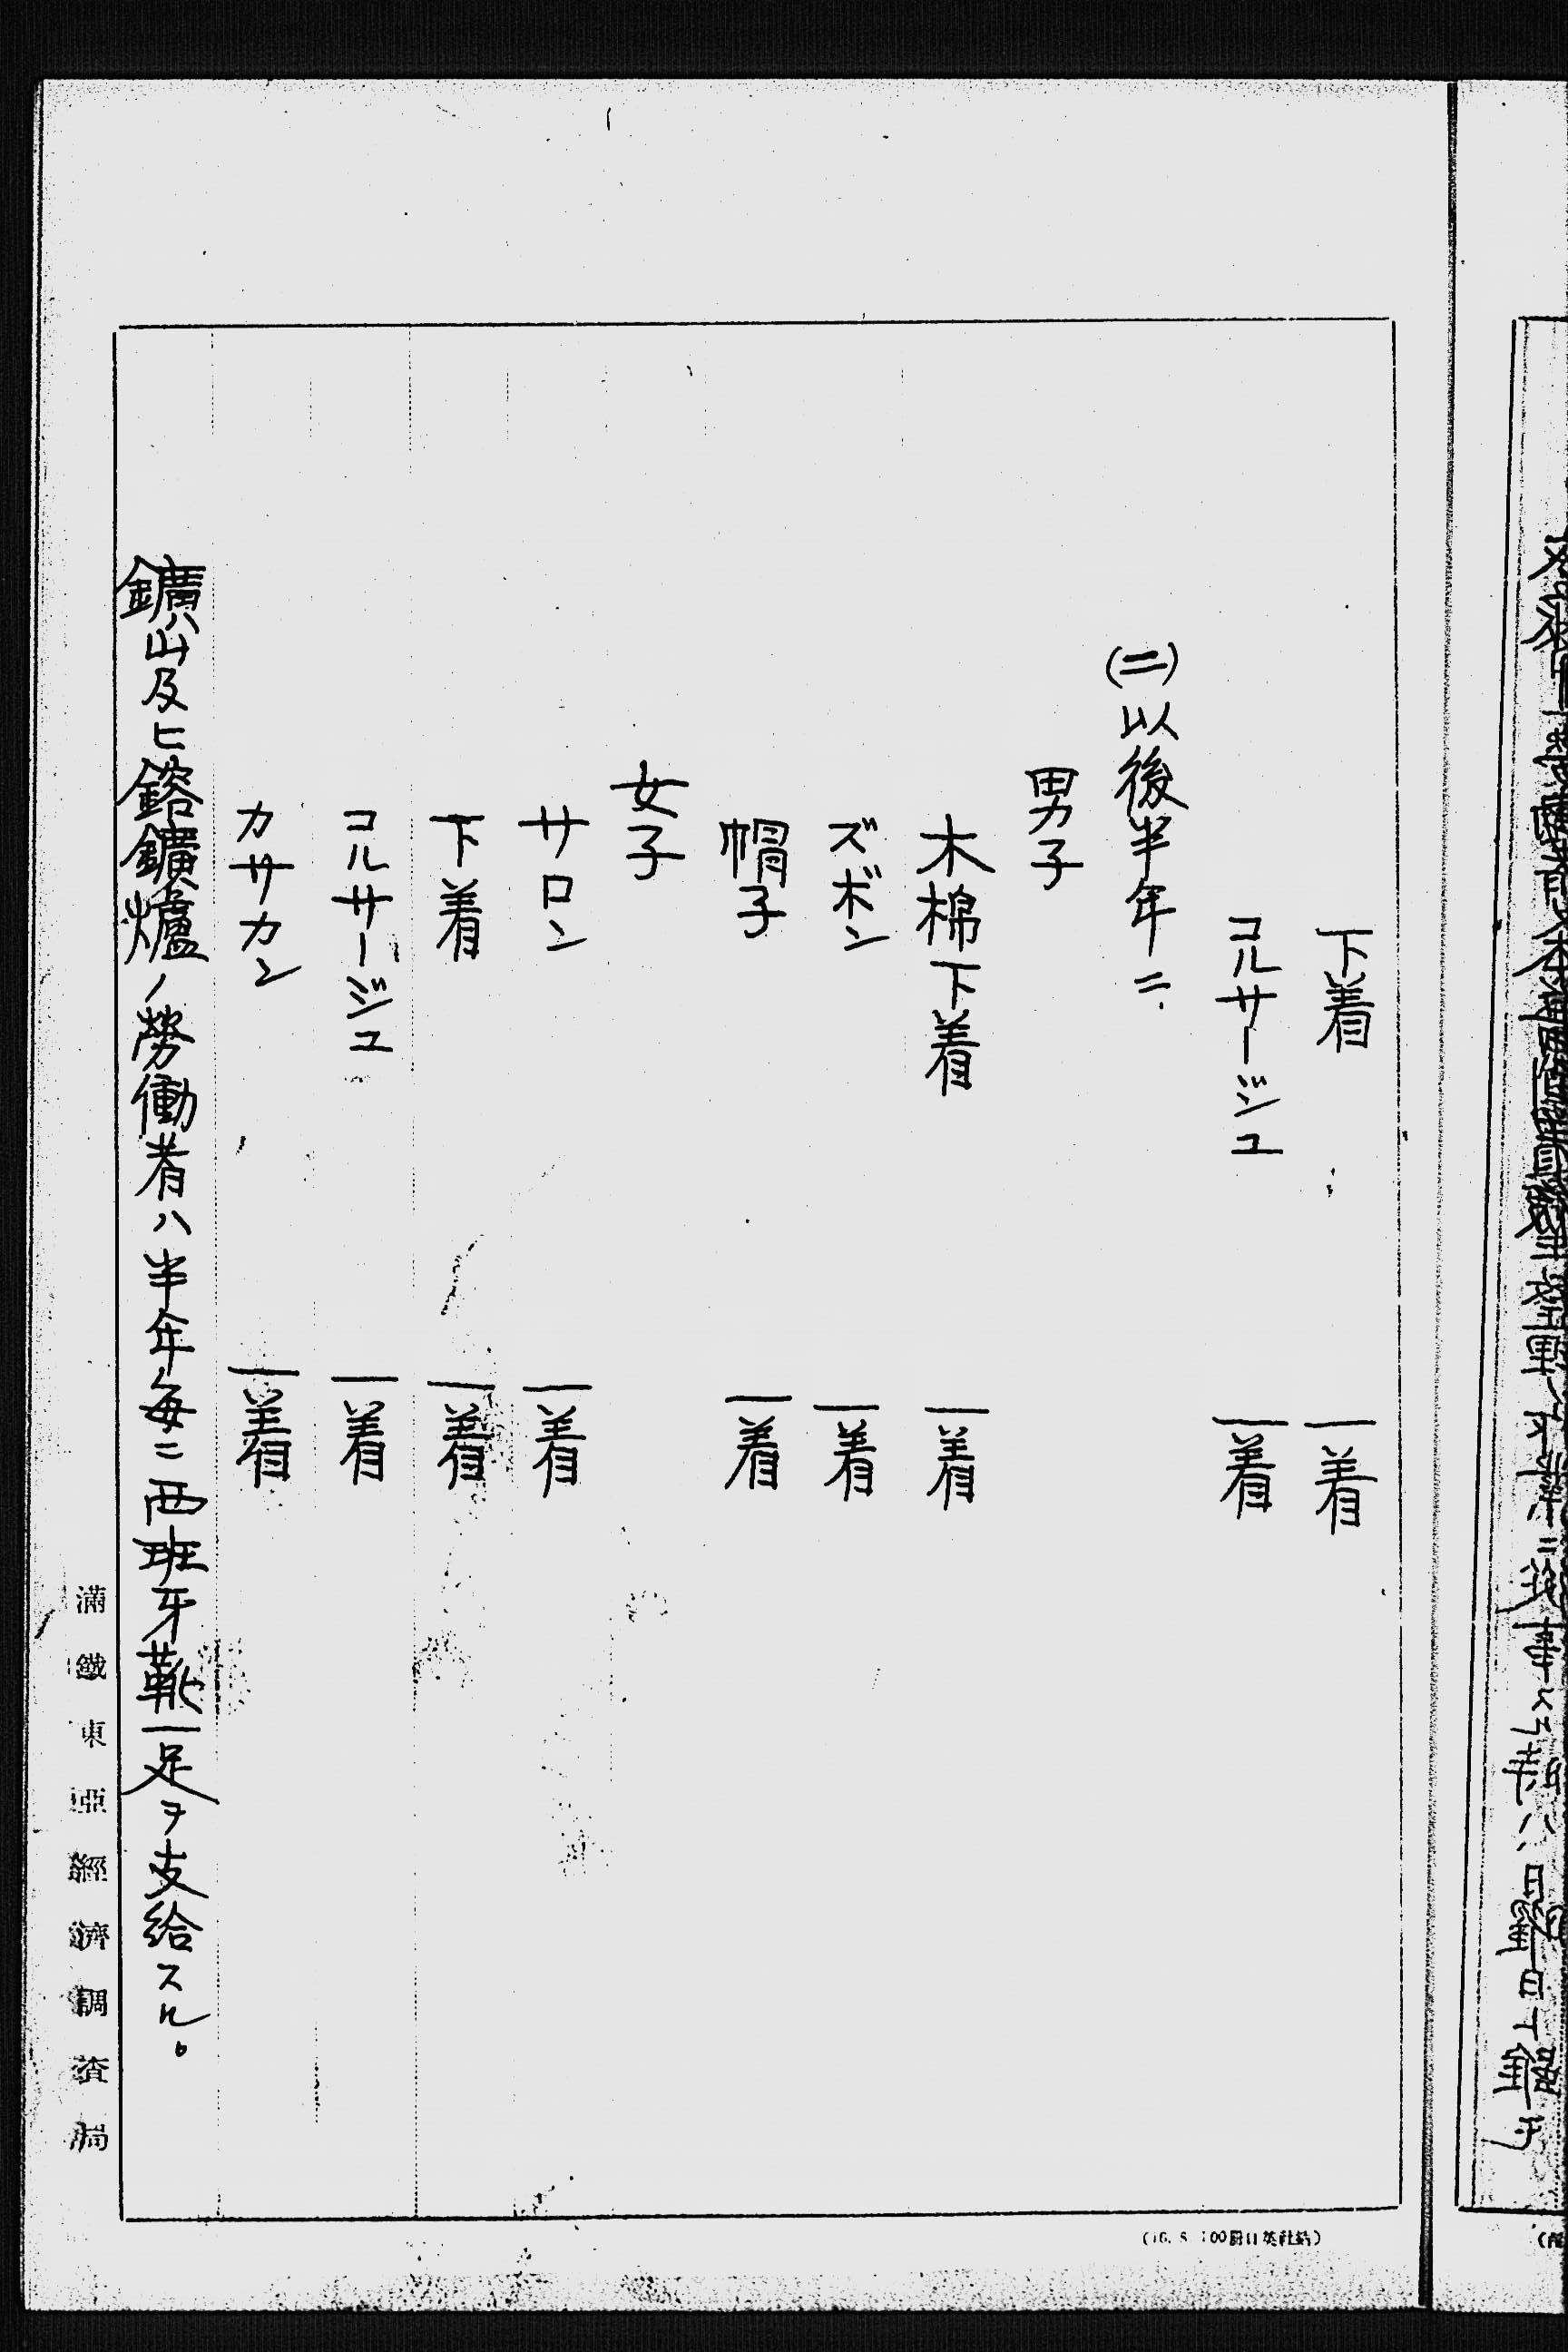 下着 一着
コルサージュ 一着
(二)以後半年ニ
男子
木棉下着 一着
ズボン 一着
帽子 一着
女子
サロン 一着
下着 一着
コルサージュ 一着
カサカン 一着
鑛山及ヒ鎔鑛爐ノ勞働者ハ半年每ニ西班牙靴一足ヲ支給スル。
滿鐵東亞經濟調査局